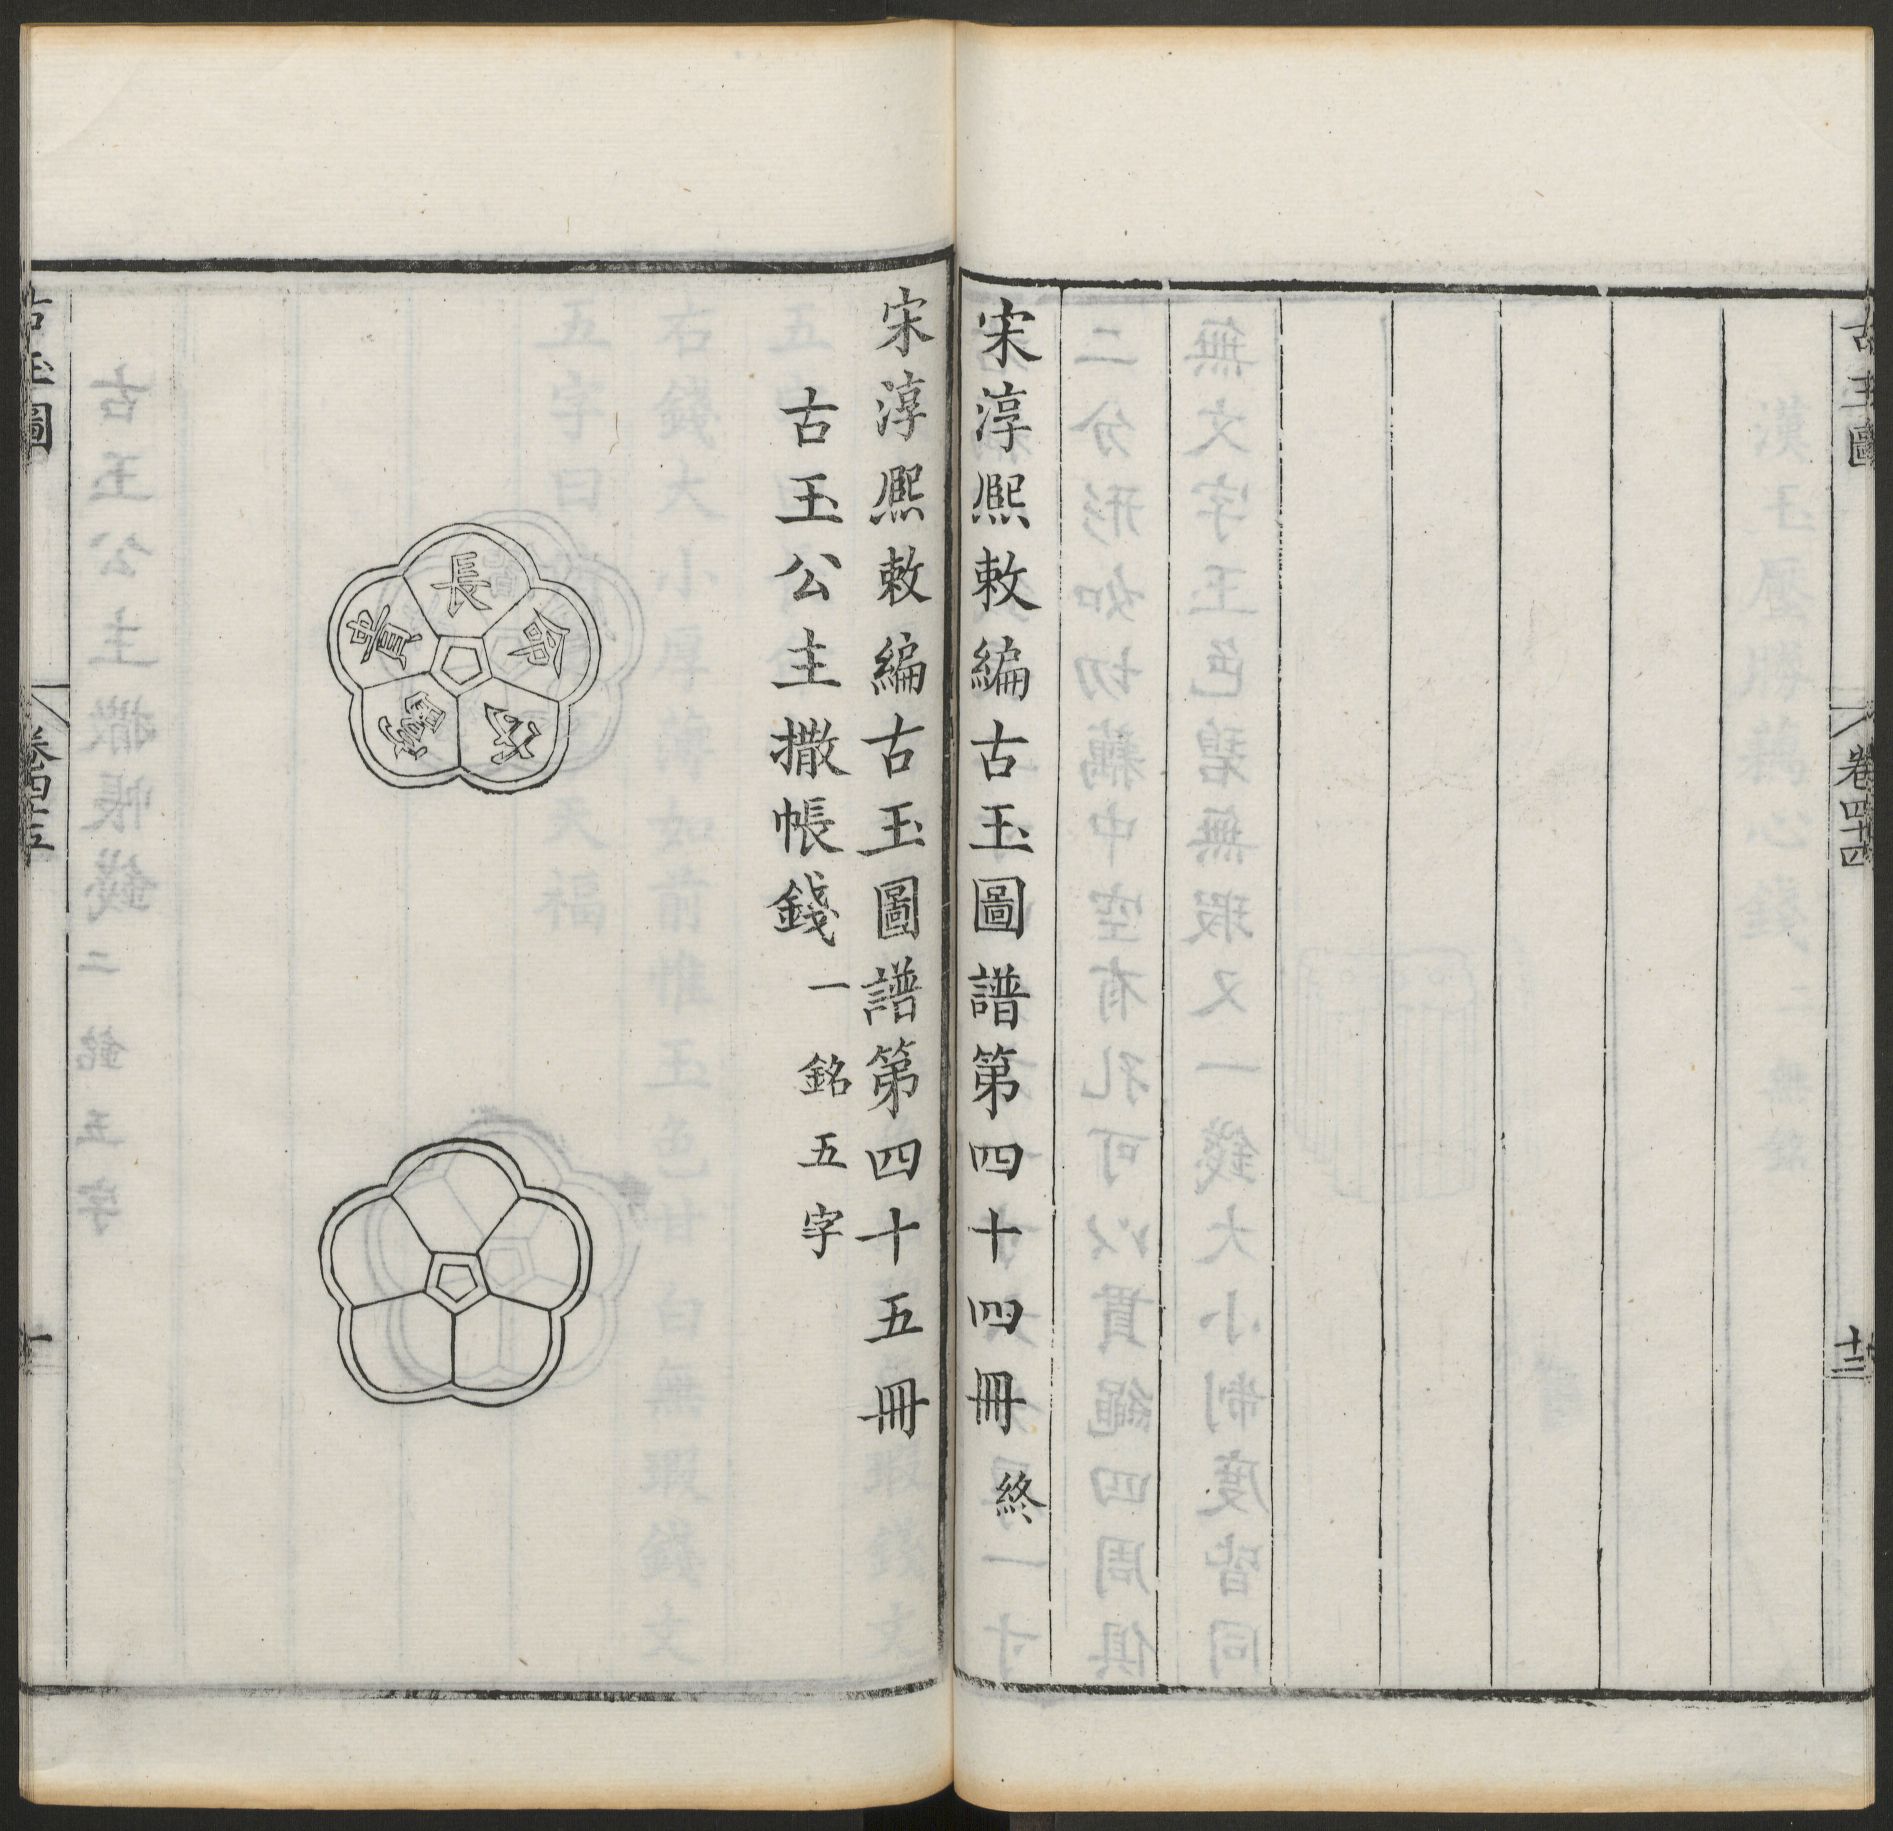 古玉圖
卷四十四
十三
宋淳熙敕編古玉圖譜第四十四冊終
宋淳熙敕編古玉圖譜第四十五冊
古玉公主撒帳錢一銘五字
長
命
貴
古玉圖
卷四十五
一